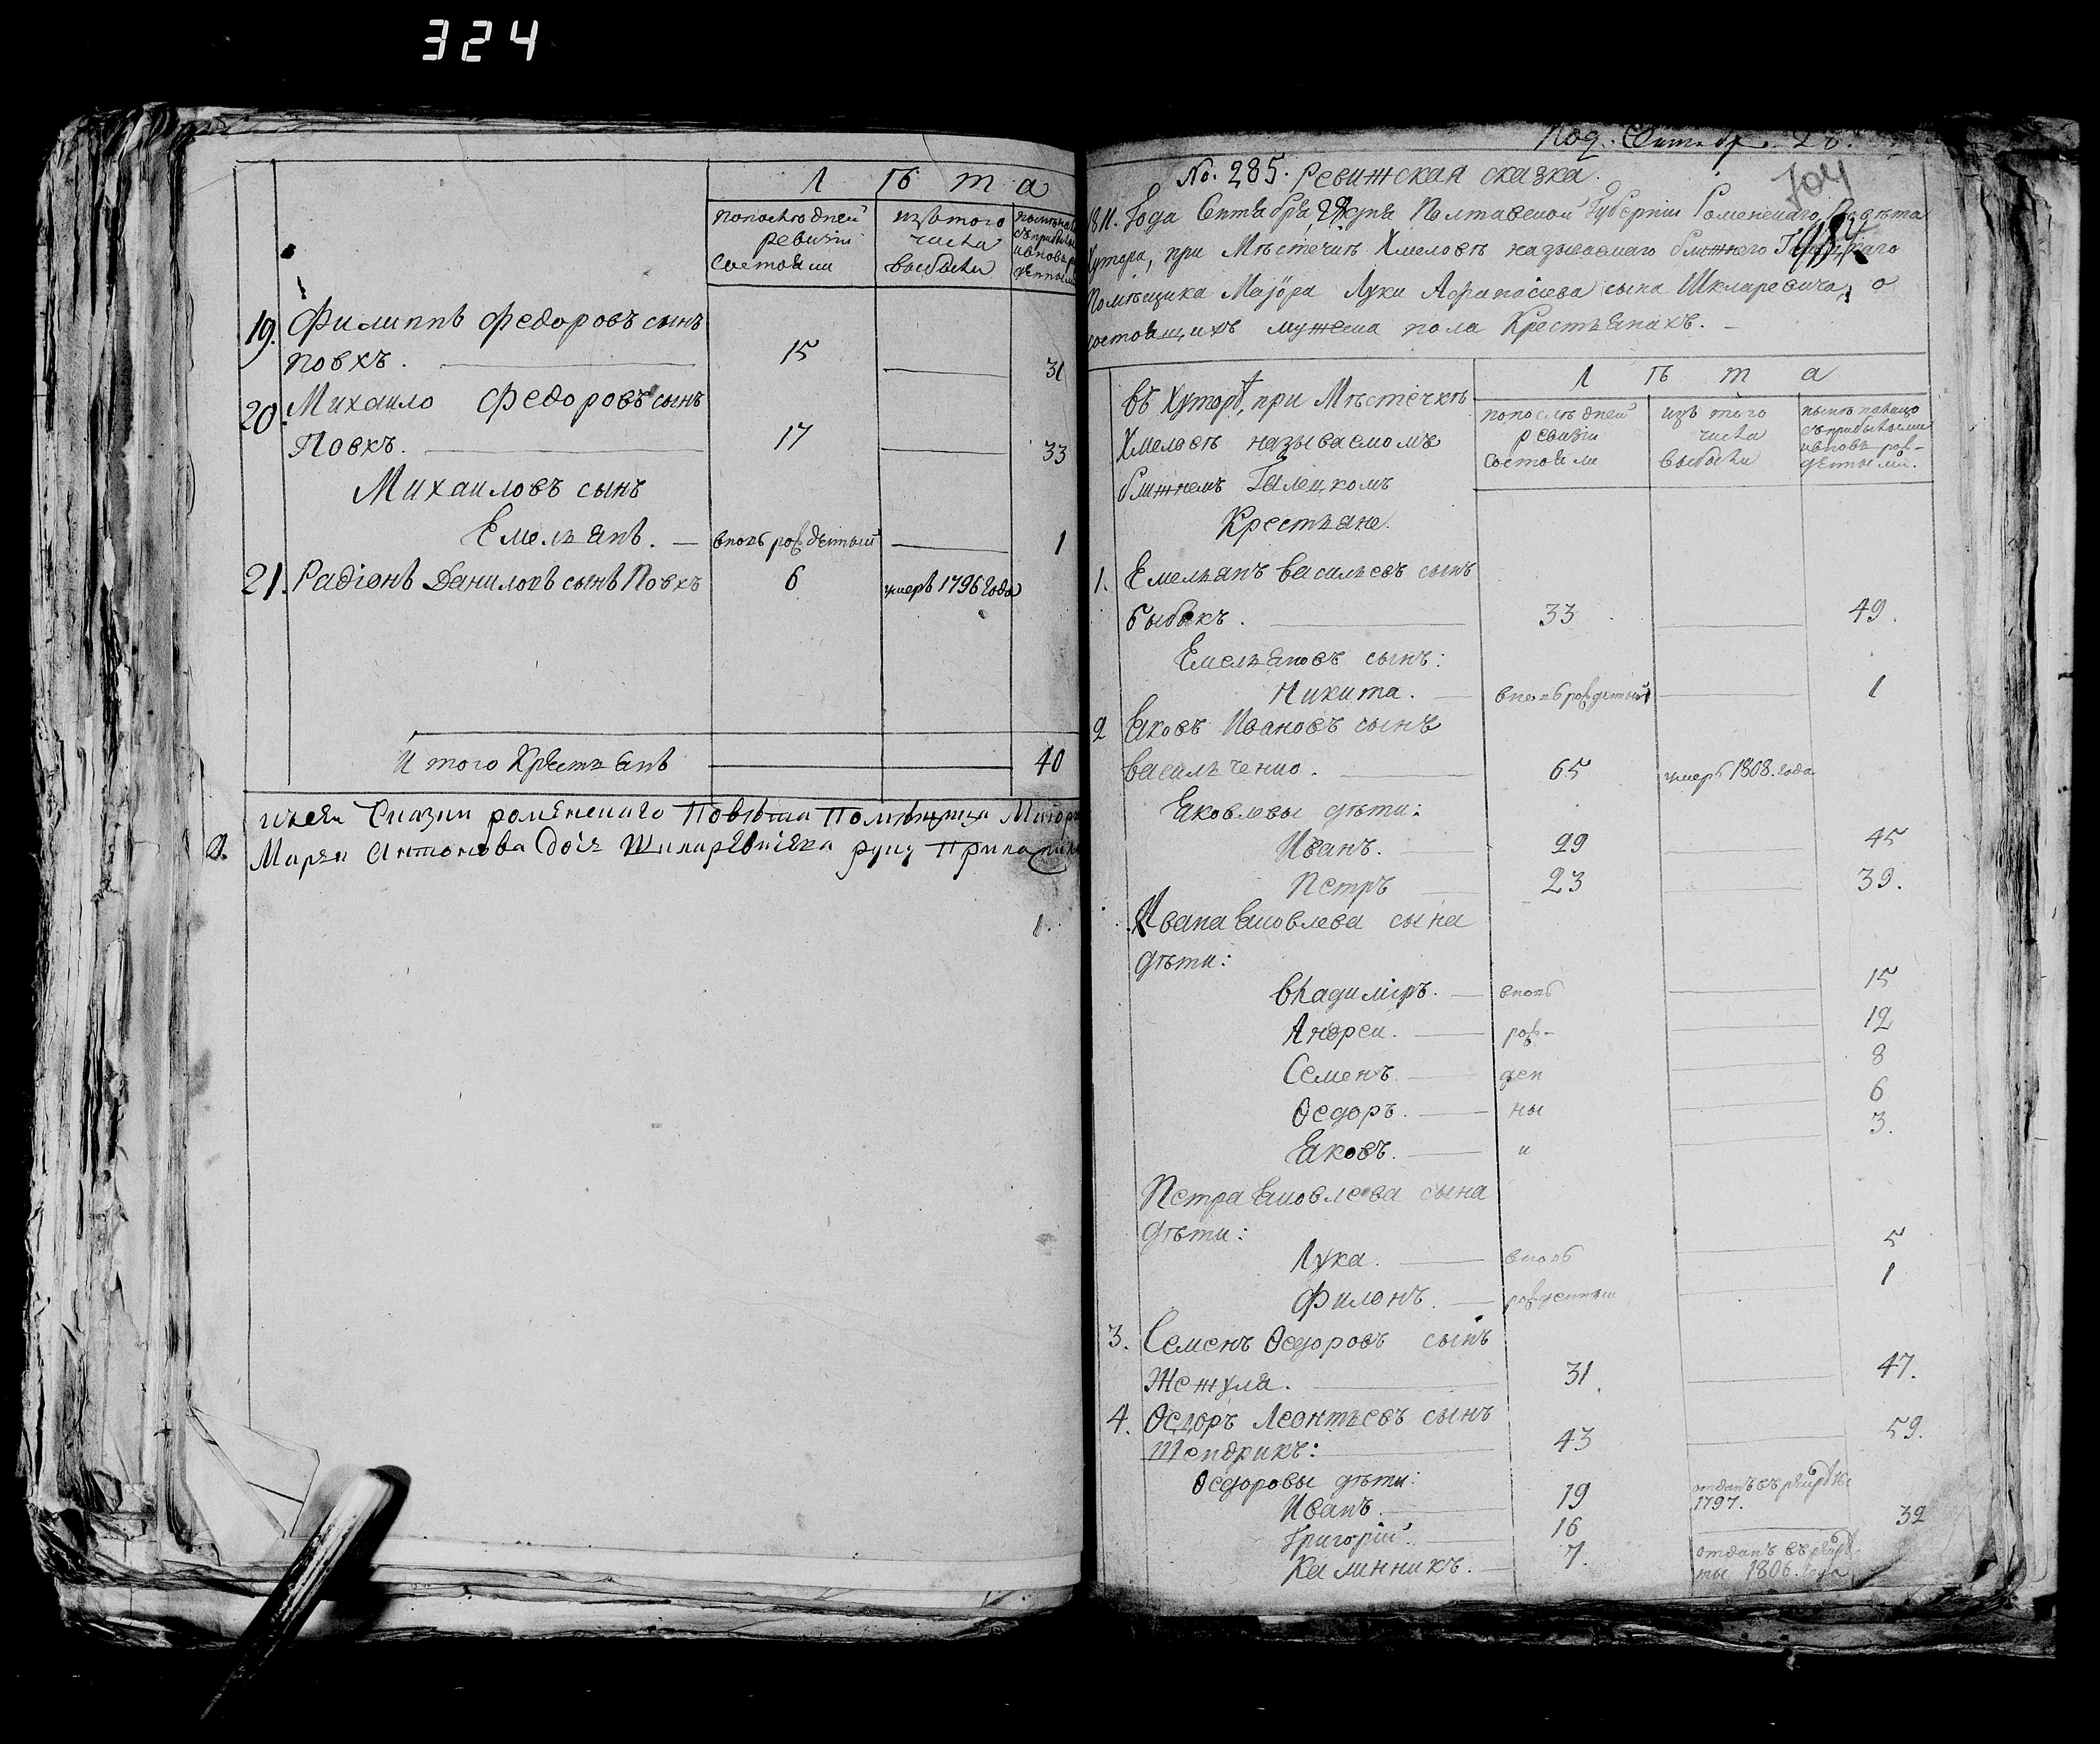 324
Л ѣ т а
попослѣдней ревизіи состояли
изътого числа выбыли
19. Филиппъ Федоровъ сынъ
Повхъ. 15 31
20. Михаило Федоровъ сынъ
Повхъ. 17 33
Михаиловъ сынъ
Емельянъ. вновь рожденный 1
21. Радіонъ Даниловъ сынъ Повхъ 6 умеръ 1796 года
Итого Крестьянъ 40
Сказки роменского Повѣта Помѣщица
Марья Антонова
No. 285. Ревижская сказка.
1811. Года Сентября дня Полтавской Губерніи Роменскаго Повѣта
Хутора, при Мѣстечкѣ Хмеловѣ называемаго ближнего
Помѣщика Маіора Луки Афанасіева сына Шкларевича, о
состоящихъ мужеска пола Крестьянахъ.
Л ѣ т а
въ Хуторѣ, при Мѣстечкѣ
Хмеловѣ называемомъ
ближнемъ Галецкомъ
Крестьяне.
попослѣдней ревизіи состояли
изъ того числа выбыли
1. Емельянъ Васильевъ сынъ
Быбикъ. 33 49.
Емельяновъ сынъ:
Никита. вновь рожденный 1
2 Яковъ Ивановъ сынъ
Васильченко. 65 умеръ 1808. года
Яковлевы дѣти:
Иванъ. 29 45
Петръ 23 39.
Ивана Яковлева сына
дѣти:
Владиміръ. вновь 15
Андреи. рож- 12
Семенъ. ден 8
Ѳедоръ. ны 6
Яковъ. и 3.
Петра Яковлева сына
дѣти:
Лука. вновь 5
Филонъ. рожденныи 1
3. Семенъ Ѳедоровъ сынъ
Жежуля. 31. 47.
4. Ѳедоръ Леонтьевъ сынъ
Тендрикъ: 43 59.
Ѳедоровы дѣти:
Иванъ. 19 отданъ въ рекруты 1797.
Григорій. 16 32
Калинникъ. 7. отданъ въ рекруты 1806. года